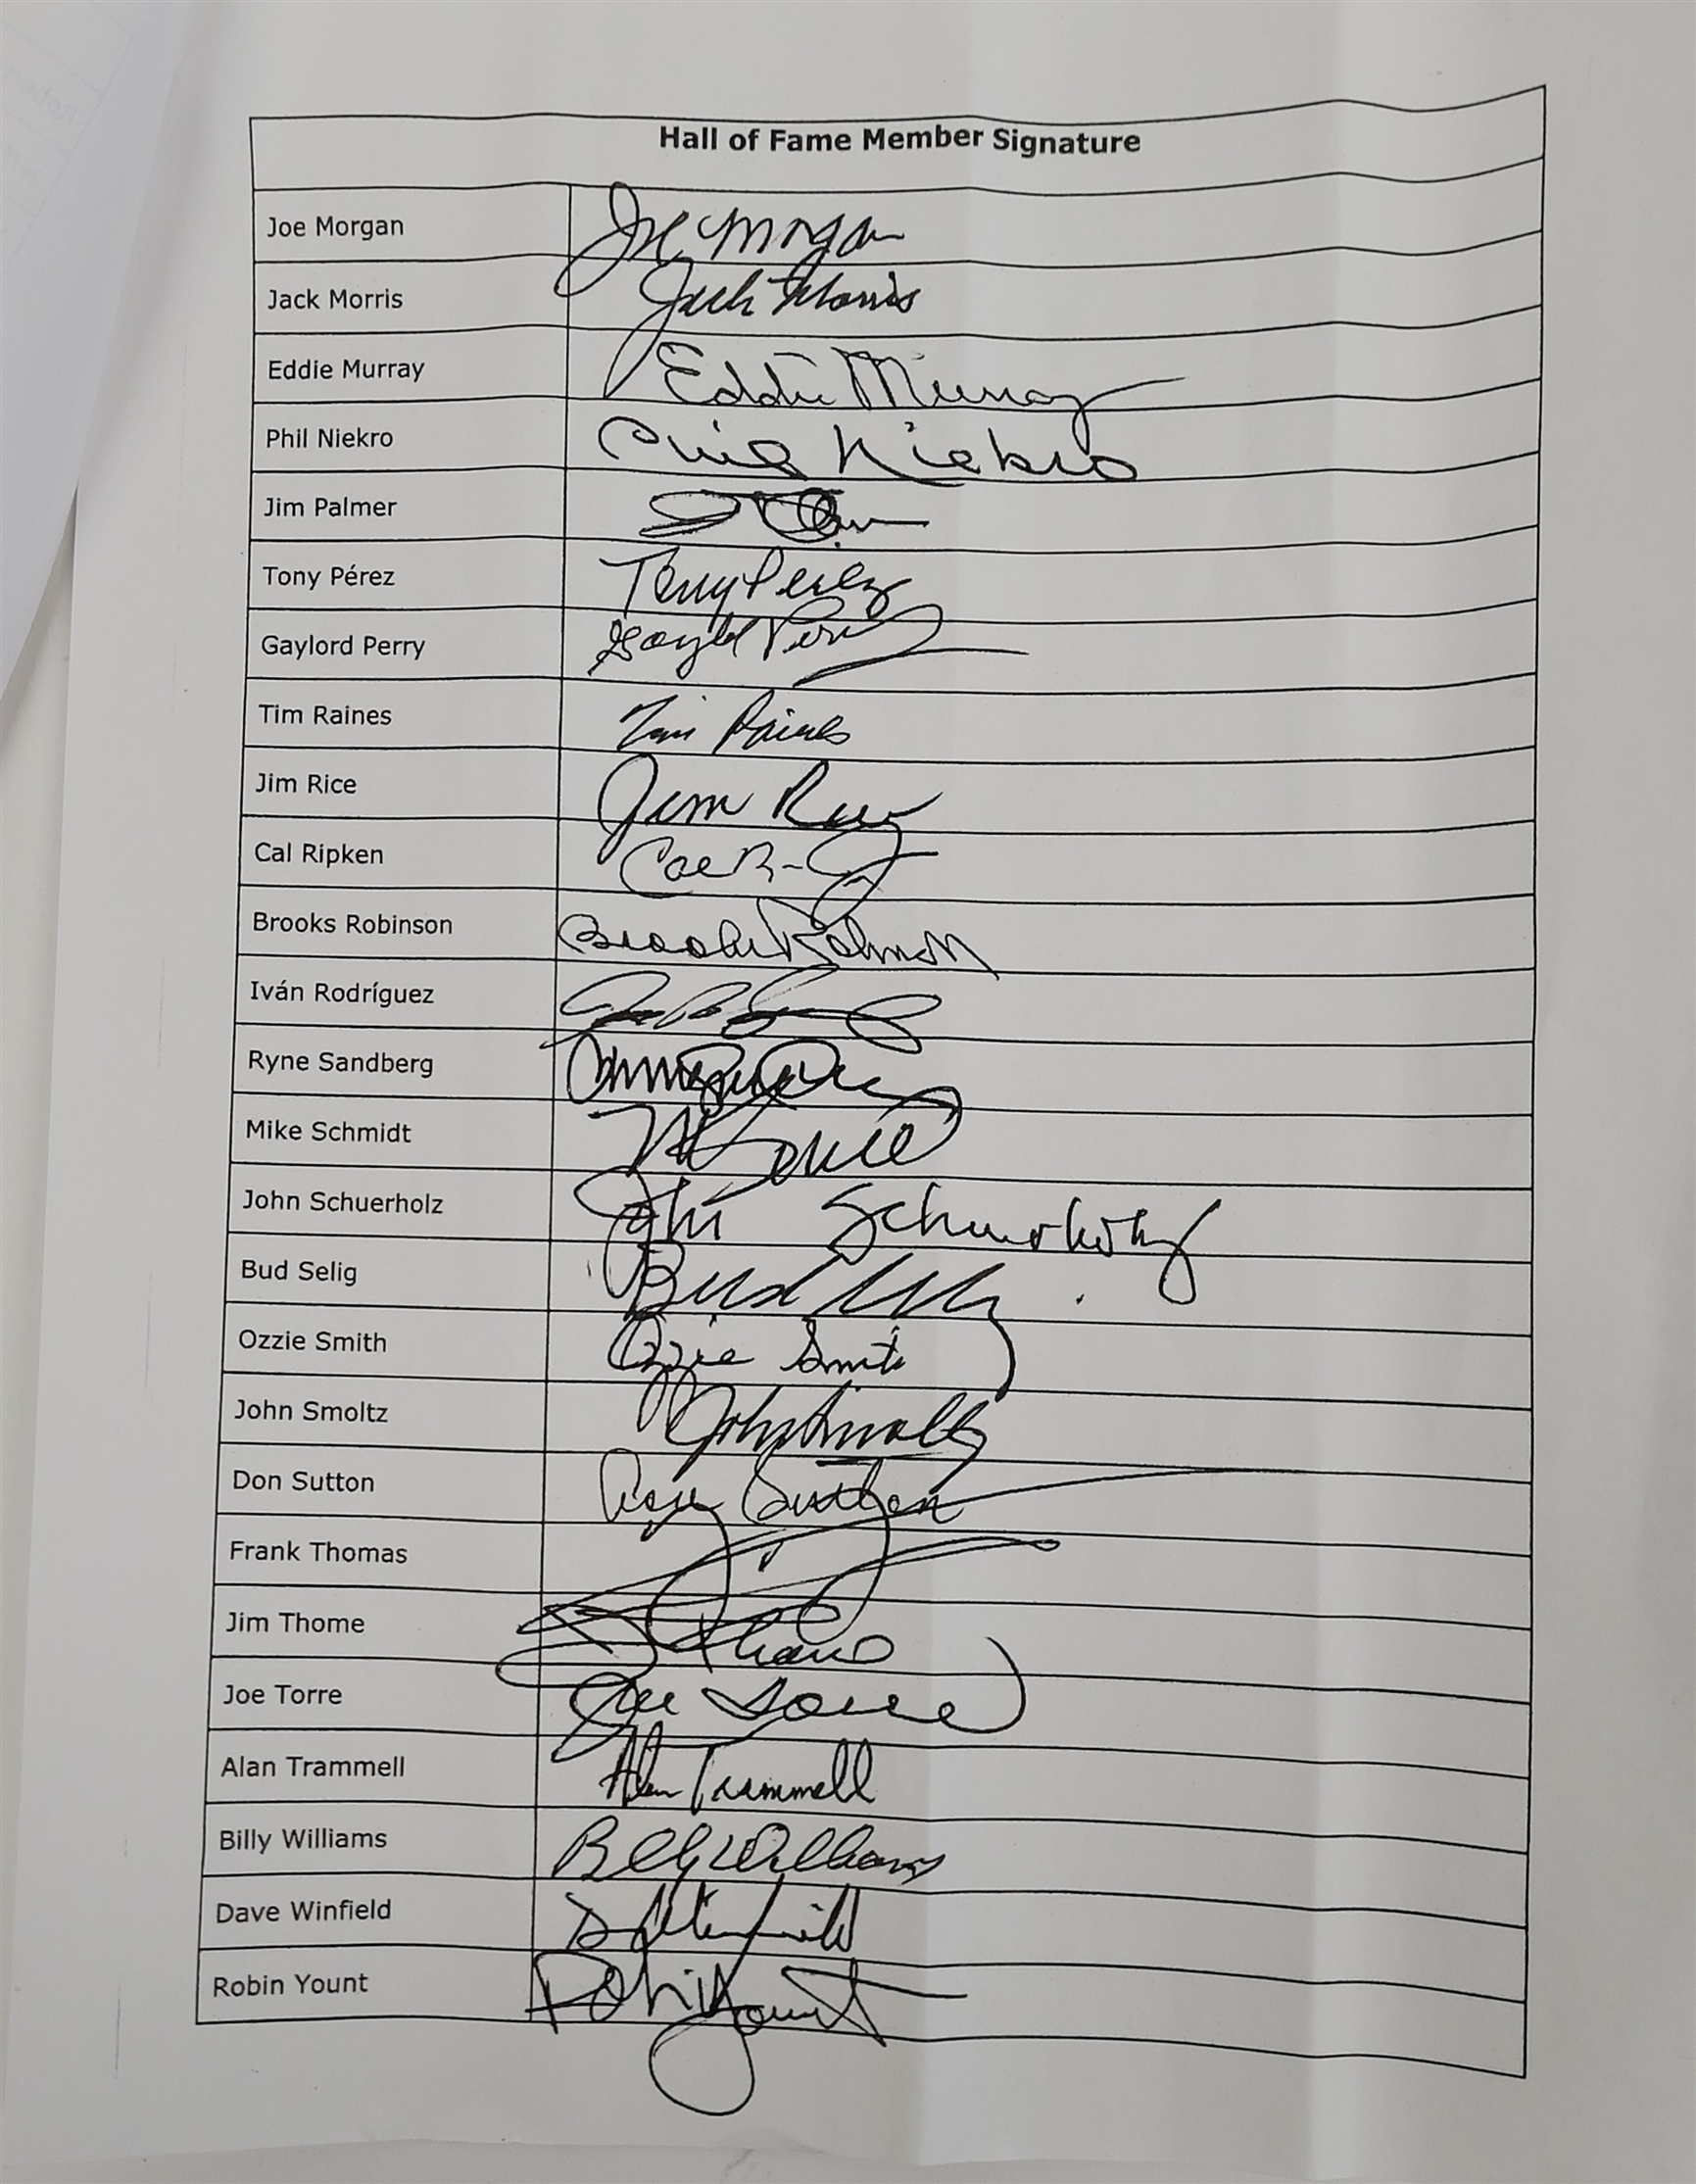 Hall of Fame Member Signature
Joe Morgan Joe Morgan
Jack Morris Jack Morris
Eddie Murray Eddie Murray
Phil Niekro Phil Niekro
Jim Palmer
Tony Pérez Tony Perez
Gaylord Perry Gaylord Perry
Tim Raines Tim Raines
Jim Rice Jim Rice
Cal Ripken Cal
Brooks Robinson Brooks Robinson
Iván Rodríguez
Ryne Sandberg
Mike Schmidt
John Schuerholz John Schuerholz
Bud Selig Bud Selig
Ozzie Smith Ozzie Smith
John Smoltz John Smoltz
Don Sutton Don Sutton
Frank Thomas
Jim Thome
Joe Torre Joe Torre
Alan Trammell Alan Trammell
Billy Williams Billy Williams
Dave Winfield D Winfield
Robin Yount Robin Yount